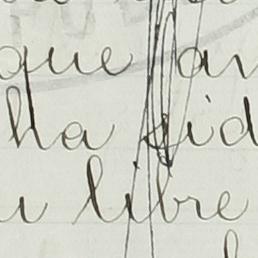 que an
ha sid
u libre